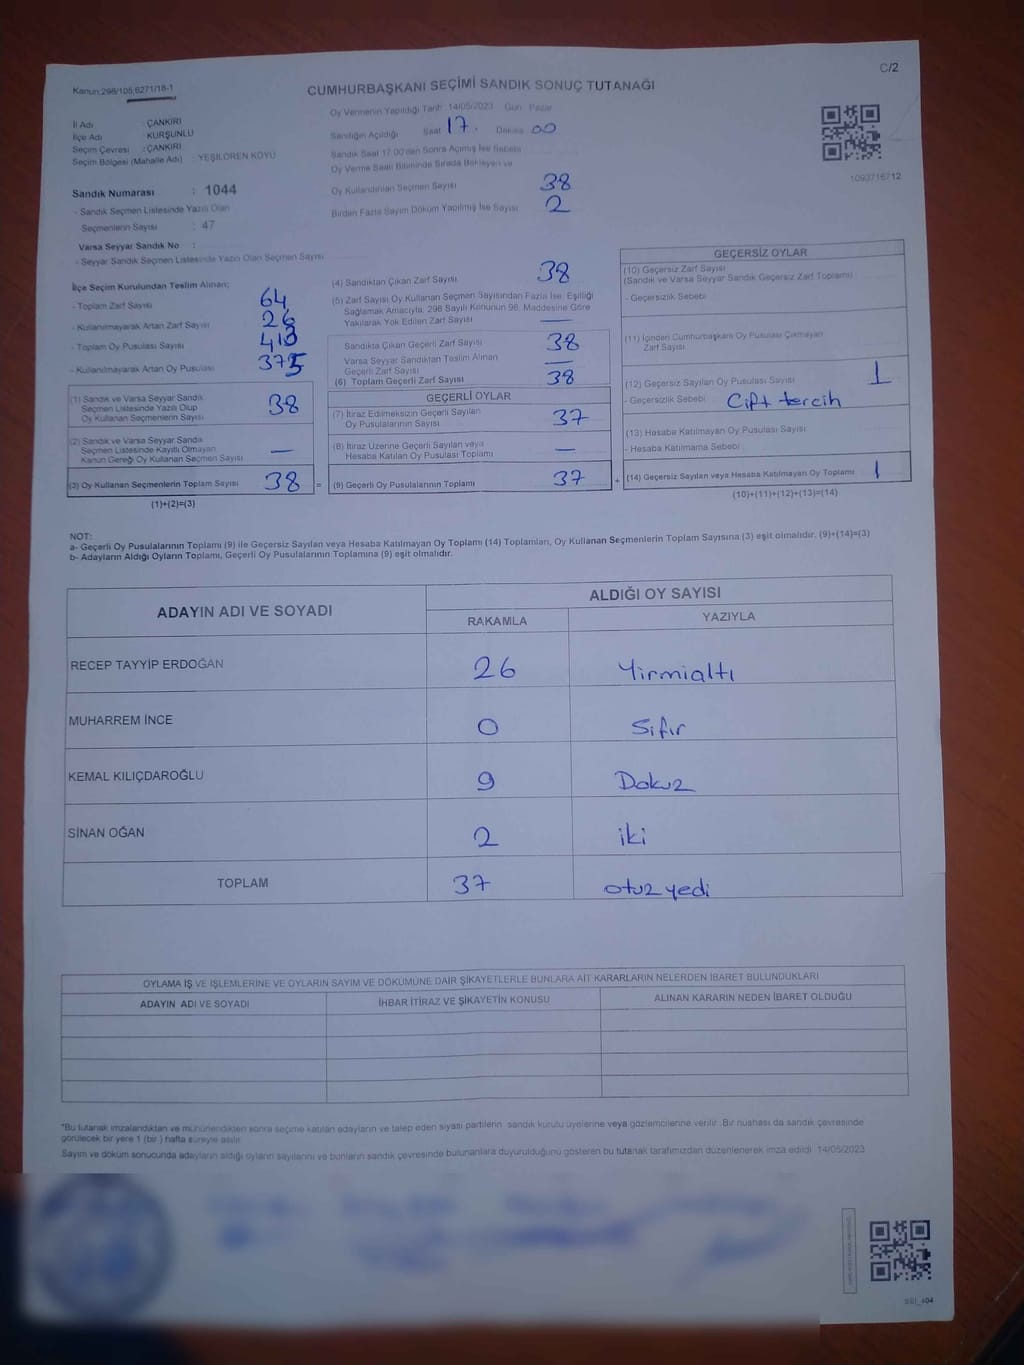 C/2
Kanun:298/105,6271/18-1
CUMHURBAŞKANI SEÇİMİ SANDIK SONUÇ TUTANAĞI
İl Adı ÇANKIRI
İlçe Adı KURŞUNLU
Seçim Çevresi : ÇANKIRI
Seçim Bölgesi (Mahalle Adı) : YEŞİLÖREN KÖYÜ
Oy Vermenin Yapıldığı Tarih : 14/05/2023 Gün : Pazar
Sandığın Açıldığı Saat 17. Dakika 00
Sandık Saat 17.00'den Sonra Açılmış İse Sebebi
Oy Verme Saati Bitiminde Sırada Bekleyen ve
Oy Kullandırılan Seçmen Sayısı 38
Birden Fazla Sayım Döküm Yapılmış İse Sayısı 2
1093716712
Sandık Numarası : 1044
- Sandık Seçmen Listesinde Yazılı Olan
Seçmenlerin Sayısı : 47
Varsa Seyyar Sandık No :
- Seyyar Sandık Seçmen Listesinde Yazılı Olan Seçmen Sayısı
İlçe Seçim Kurulundan Teslim Alınan;
- Toplam Zarf Sayısı 64
- Kullanılmayarak Artan Zarf Sayısı 26
- Toplam Oy Pusulası Sayısı 413
- Kullanılmayarak Artan Oy Pusulası 375
(1) Sandık ve Varsa Seyyar Sandık
Seçmen Listesinde Yazılı Olup
Oy Kullanan Seçmenlerin Sayısı 38
(2) Sandık ve Varsa Seyyar Sandık
Seçmen Listesinde Kayıtlı Olmayan
Kanun Gereği Oy Kullanan Seçmen Sayısı —
(3) Oy Kullanan Seçmenlerin Toplam Sayısı 38 =
(1)+(2)=(3)
(4) Sandıktan Çıkan Zarf Sayısı 38
(5) Zarf Sayısı Oy Kullanan Seçmen Sayısından Fazla İse, Eşitliği
Sağlamak Amacıyla; 298 Sayılı Kanunun 98. Maddesine Göre
Yakılarak Yok Edilen Zarf Sayısı —
Sandıkta Çıkan Geçerli Zarf Sayısı 38
Varsa Seyyar Sandıktan Teslim Alınan
Geçerli Zarf Sayısı —
(6) Toplam Geçerli Zarf Sayısı 38
GEÇERLİ OYLAR
(7) İtiraz Edilmeksizin Geçerli Sayılan
Oy Pusulalarının Sayısı 37
(8) İtiraz Üzerine Geçerli Sayılan veya
Hesaba Katılan Oy Pusulası Toplamı —
(9) Geçerli Oy Pusulalarının Toplamı 37 +
GEÇERSİZ OYLAR
(10) Geçersiz Zarf Sayısı
(Sandık ve Varsa Seyyar Sandık Geçersiz Zarf Toplamı)
- Geçersizlik Sebebi
(11) İçinden Cumhurbaşkanı Oy Pusulası Çıkmayan
Zarf Sayısı
(12) Geçersiz Sayılan Oy Pusulası Sayısı 1
- Geçersizlik Sebebi Çift tercih
(13) Hesaba Katılmayan Oy Pusulası Sayısı
- Hesaba Katılmama Sebebi
(14) Geçersiz Sayılan veya Hesaba Katılmayan Oy Toplamı 1
(10)+(11)+(12)+(13)=(14)
NOT:
a- Geçerli Oy Pusulalarının Toplamı (9) ile Geçersiz Sayılan veya Hesaba Katılmayan Oy Toplamı (14) Toplamları, Oy Kullanan Seçmenlerin Toplam Sayısına (3) eşit olmalıdır. (9)+(14)=(3)
b- Adayların Aldığı Oyların Toplamı, Geçerli Oy Pusulalarının Toplamına (9) eşit olmalıdır.
ADAYIN ADI VE SOYADI ALDIĞI OY SAYISI
RAKAMLA YAZIYLA
RECEP TAYYİP ERDOĞAN 26 Yirmialtı
MUHARREM İNCE 0 Sıfır
KEMAL KILIÇDAROĞLU 9 Dokuz
SİNAN OĞAN 2 iki
TOPLAM 37 otuzyedi
OYLAMA İŞ VE İŞLEMLERİNE VE OYLARIN SAYIM VE DÖKÜMÜNE DAİR ŞİKAYETLERLE BUNLARA AİT KARARLARIN NELERDEN İBARET BULUNDUKLARI
ADAYIN ADI VE SOYADI İHBAR İTİRAZ VE ŞİKAYETİN KONUSU ALINAN KARARIN NEDEN İBARET OLDUĞU
*Bu tutanak imzalandıktan ve mühürlendikten sonra seçime katılan adayların ve talep eden siyasi partilerin sandık kurulu üyelerine veya gözlemcilerine verilir. Bir nüshası da sandık çevresinde
görülecek bir yere 1 (bir) hafta süreyle asılır.
Sayım ve döküm sonucunda adayların aldığı oyların sayılarını ve bunların sandık çevresinde bulunanlara duyurulduğunu gösteren bu tutanak tarafımızdan düzenlenerek imza edildi. 14/05/2023